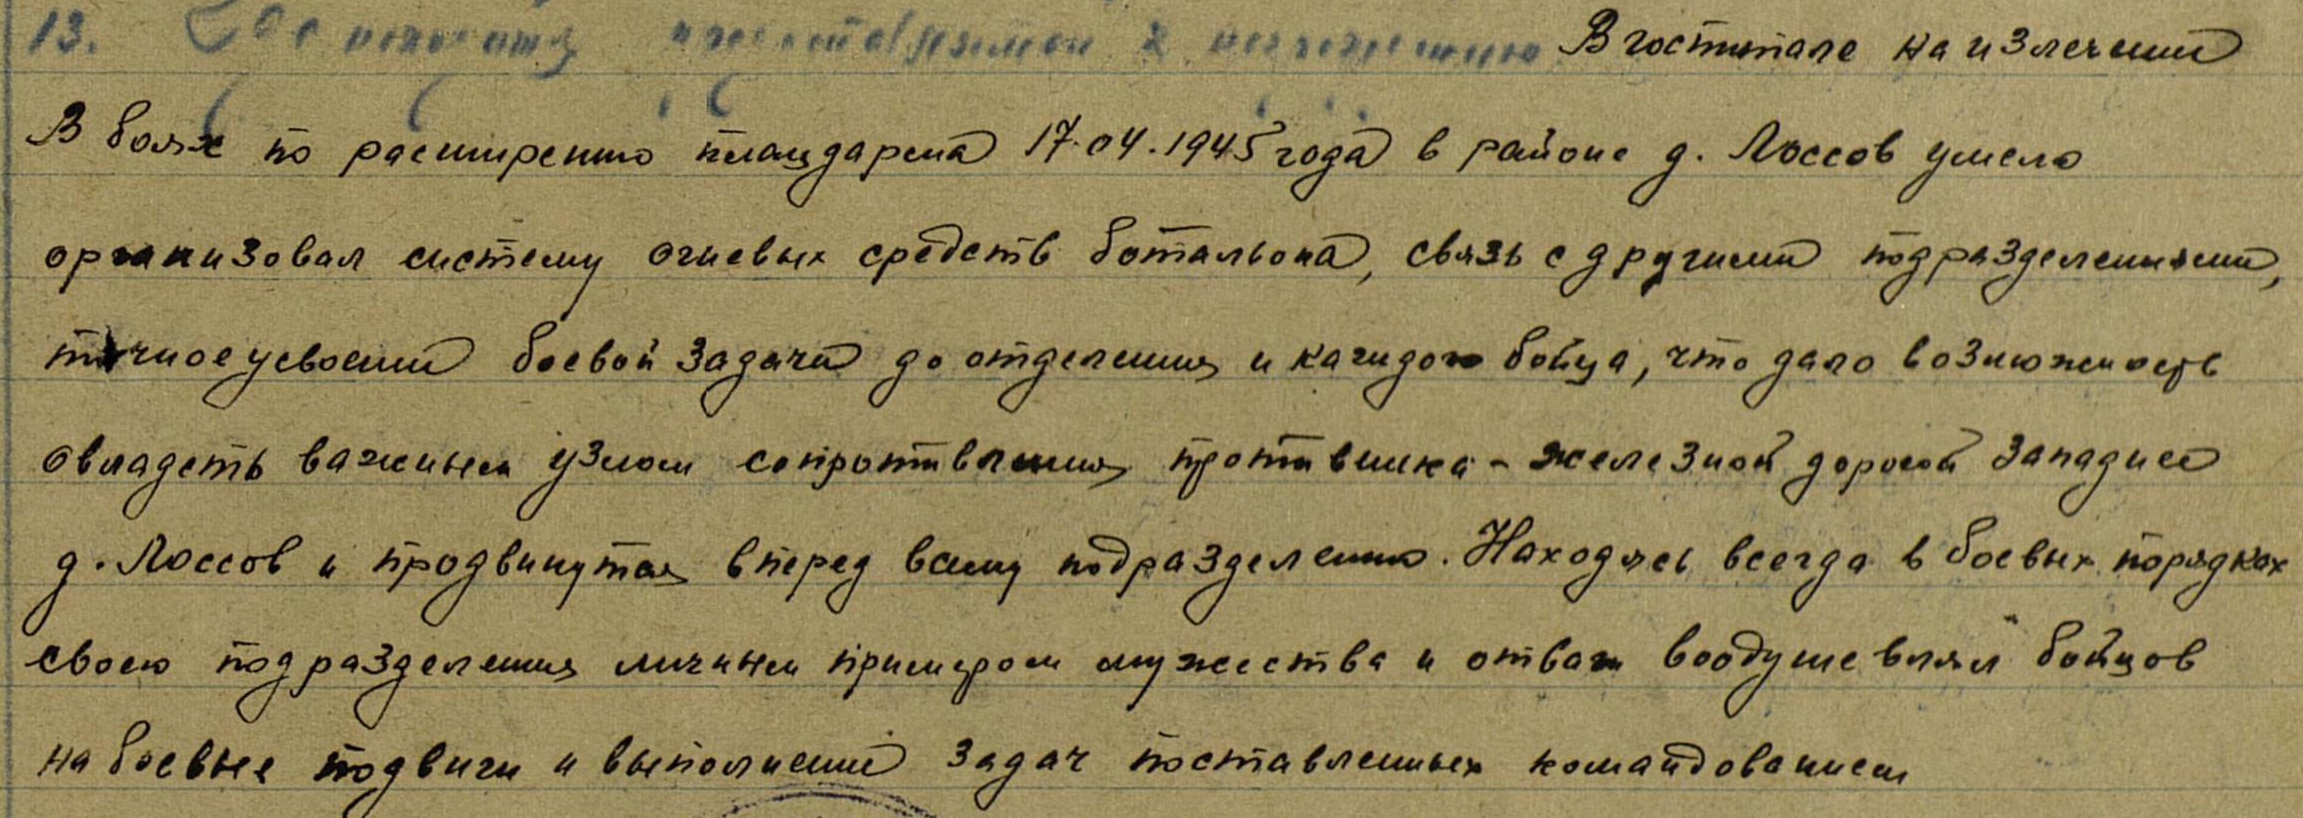 13. Где находится представляемый к награждению В госпитале на излечении
В боях по расширению плацдарма 17.04.1945 года в районе д. Лоссов умело
организовал систему огневых средств батальона, связь с другими подразделениями,
точное усвоение боевой задачи до отделения и каждого бойца, что дало возможность
овладеть важным узлом сопротивления противника - железной дорогой западнее
д. Лоссов и продвинутся вперед всему подразделению. Находясь всегда в боевых порядках
своего подразделения личным примером мужества и отваги воодушевлял бойцов
на боевые подвиги и выполнение задач поставленных командованием